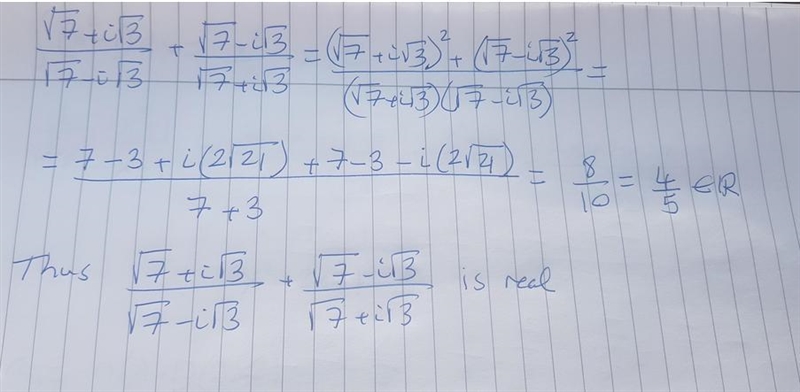 (√7+i√3)/(√7-i√3) + (√7-i√3)/(√7+i√3) = ((√7+i√3)² + (√7-i√3)²)/((√7+i√3)(√7-i√3)) =
= (7-3+i(2√21)+7-3-i(2√21))/(7+3) = 8/10 = 4/5 ∈ ℝ
Thus (√7+i√3)/(√7-i√3) + (√7-i√3)/(√7+i√3) is real